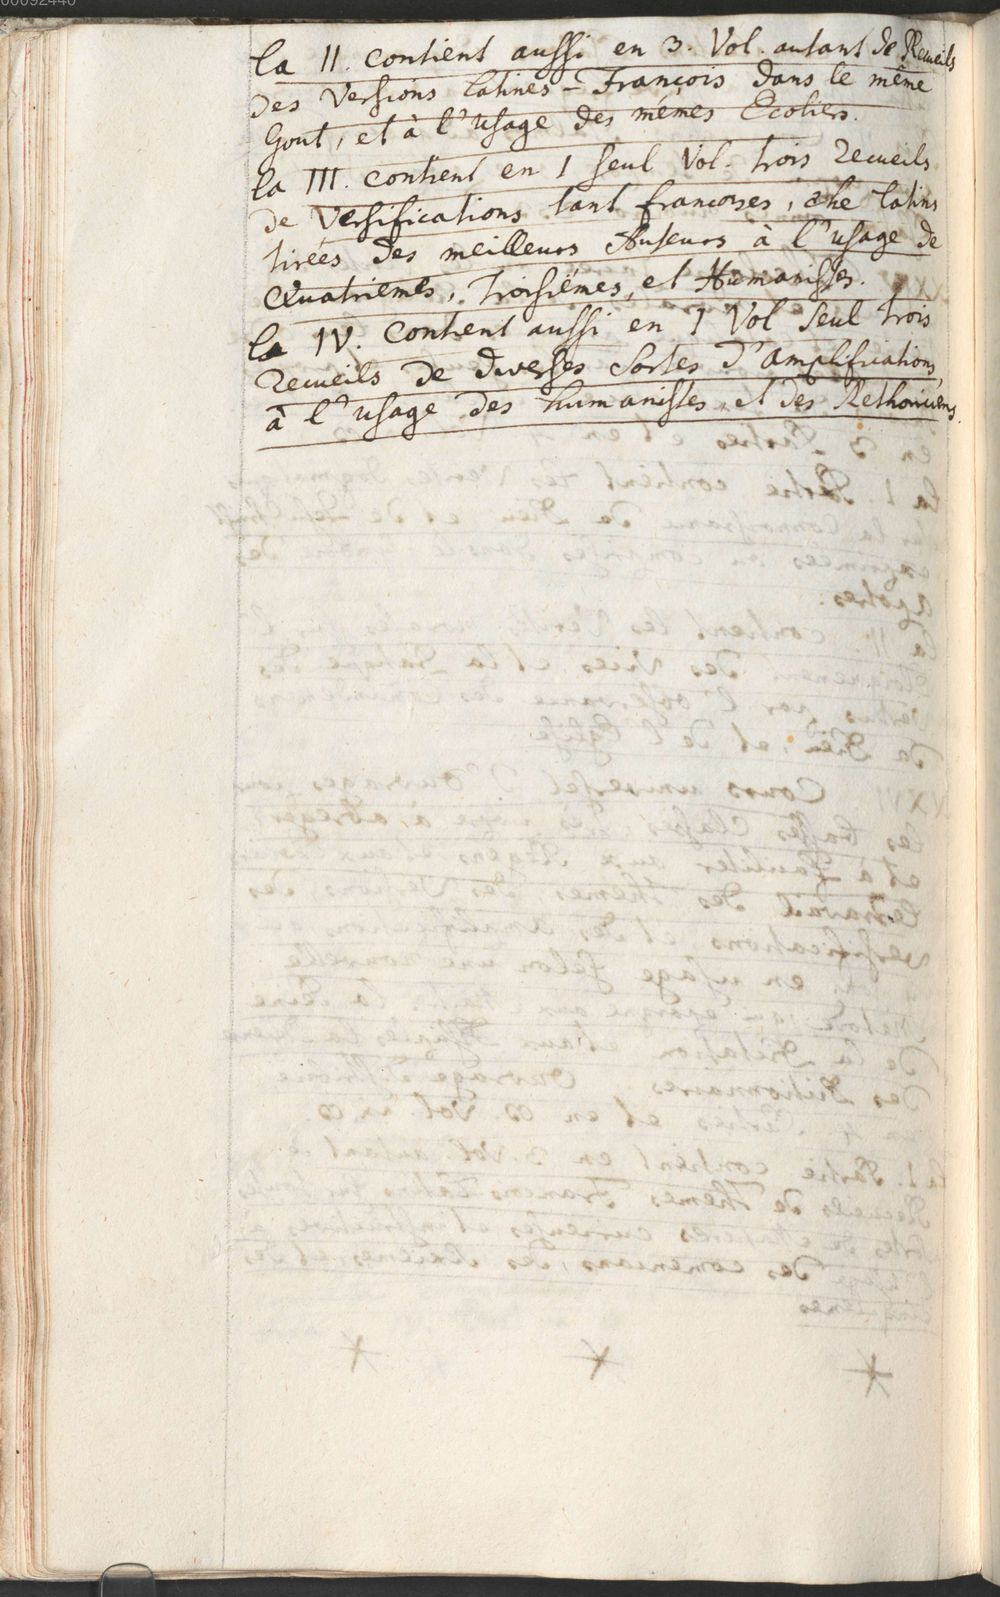 la II. contient aussi en 3. Vol. autant de Recueils
des Versions latines-François dans le même
Gout, et à l'usage des mémes Ecoliers.
la III. contient en I seul Vol. trois recueils
de Versifications tant francoises, latins
tirées des meilleurs Auteurs à l'usage de
Quatriemes, Troisiémes, et Humanistes.
la IV. Contient aussi en I Vol seul trois
recueils de diverses sortes d'amplifications,
à l'usage des humanistes, et des Rethoriciens.